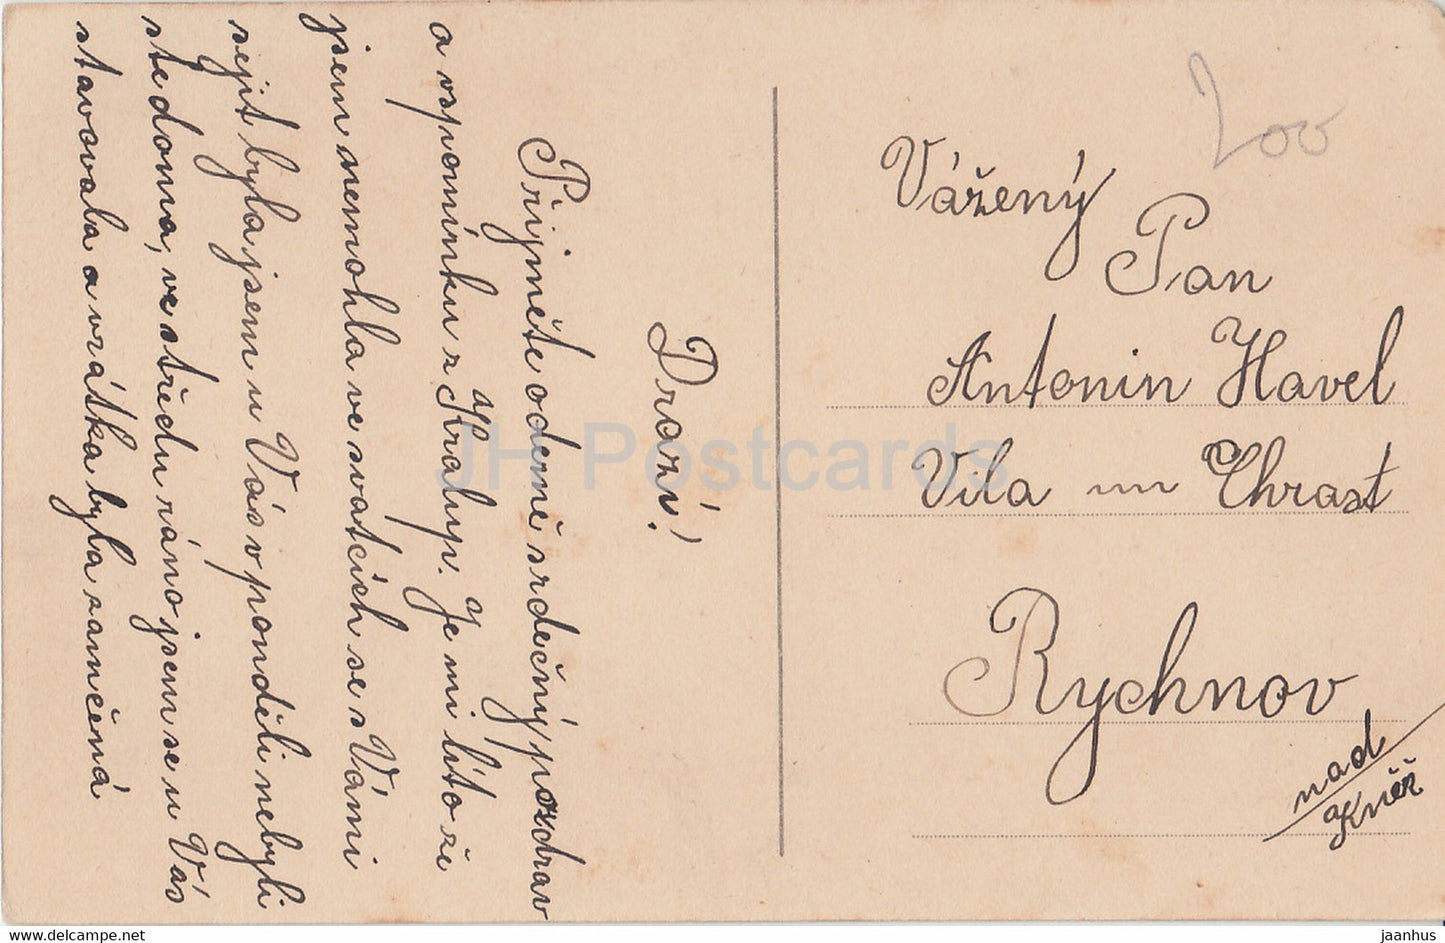 Drazí!
Přijměte odemě srdečný pozdrav
a vspomínku z Kralup. Je mi líto že
jsem nemohla ve svatcích se s Vámi
sejít byla jsem u Vás v pondělí nebyli
ste doma, ve středu ráno jsem se u Vás
stavovala a vrátka byla zamčená
200
Vážený
Pan
Antonin Havel
Vila un Chrast
Rychnov
nad
Kněž
JH Postcards
www.delcampe.net
jaanhus